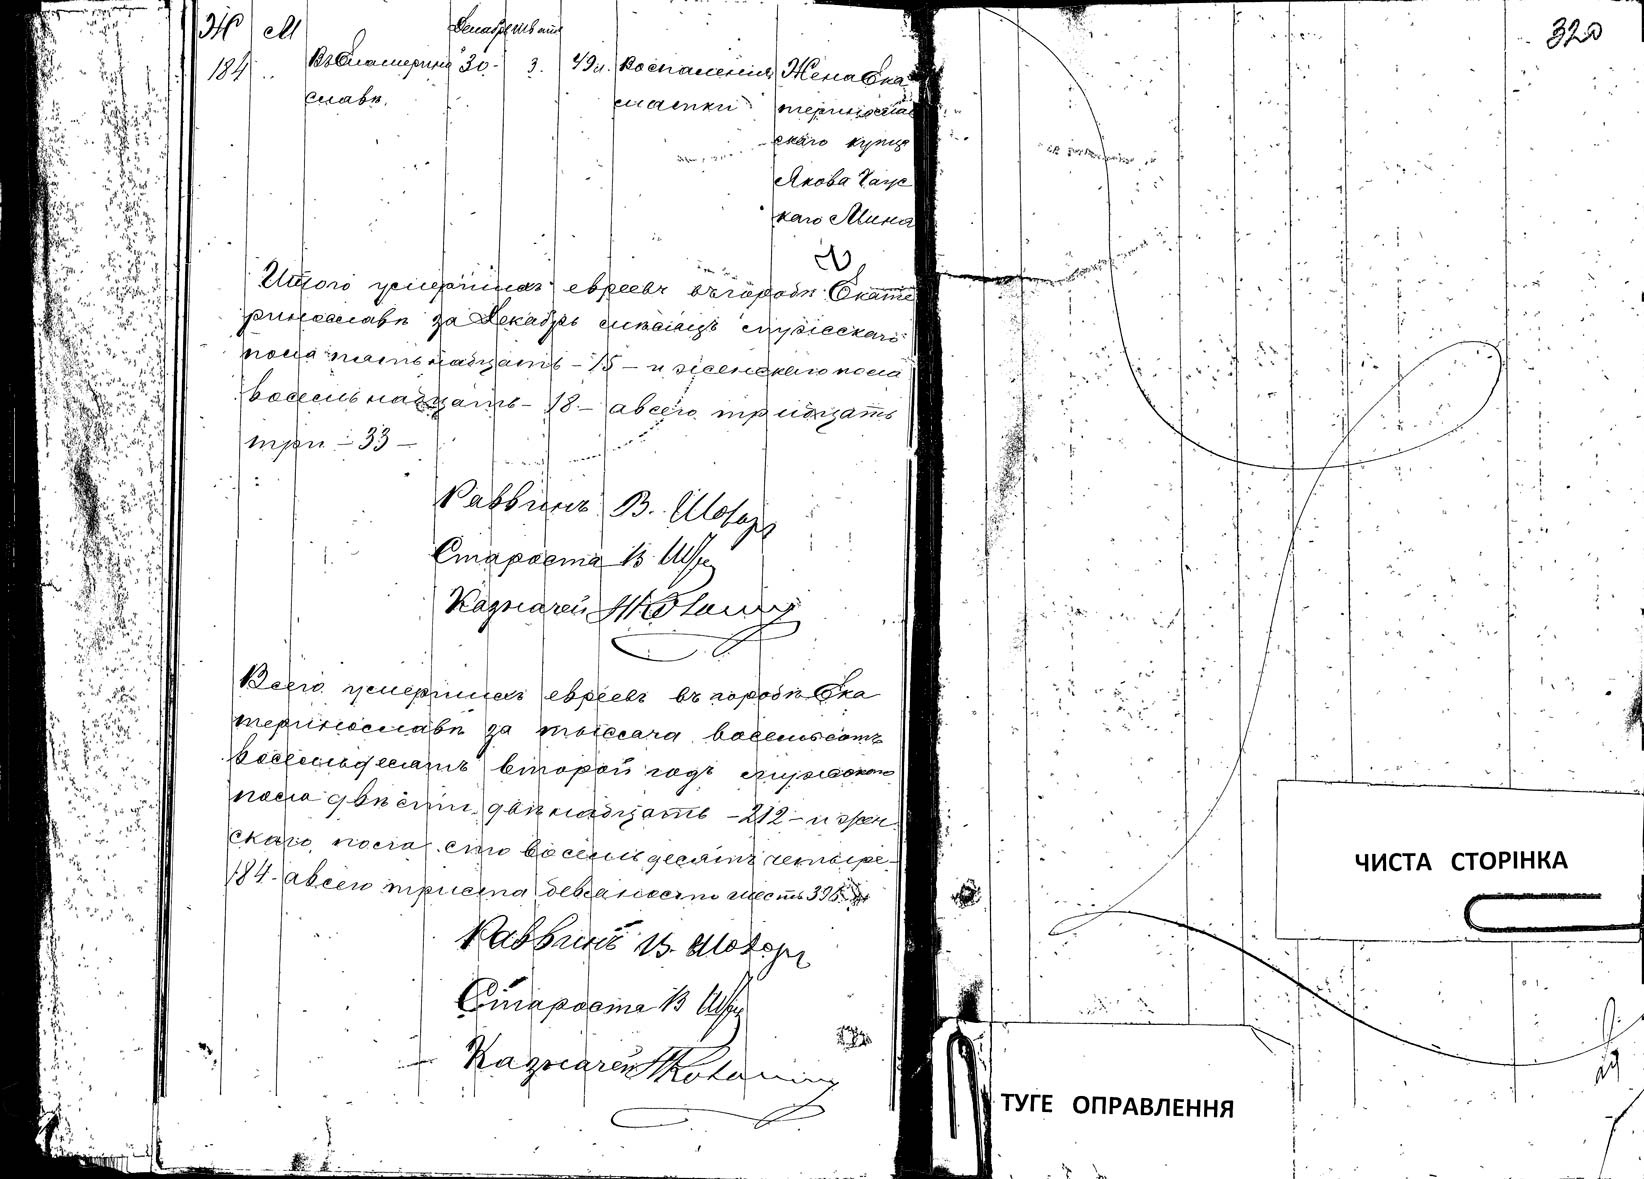 Ж М Декабрь
184 Въ Екатерино 30. 3. 49 л. Воспаления Жена Ека
славѣ. матки теринослав
скаго купца
Якова
каго Мина
Итого умершихъ евреевъ въ городѣ Екате
ринославѣ за Декабрь мѣсяцъ мужескаго
пола пятьнадцать - 15 - и женскаго пола
восемьнадцать - 18 - а всего тридцать
три - 33 -
Раввинъ В.
Староста В.
Казначей
Всего умершихъ евреевъ въ городѣ Ека
теринославѣ за тысяча восемьсотъ
восемьдесятъ второй годъ мужескаго
пола двѣсти двѣнадцать - 212 - и жен
скаго пола сто восемьдесятъ четыре -
184 - а всего триста девяносто шесть 396
Раввинъ В.
Староста В
Казначей
320
ЧИСТА СТОРІНКА
ТУГЕ ОПРАВЛЕННЯ